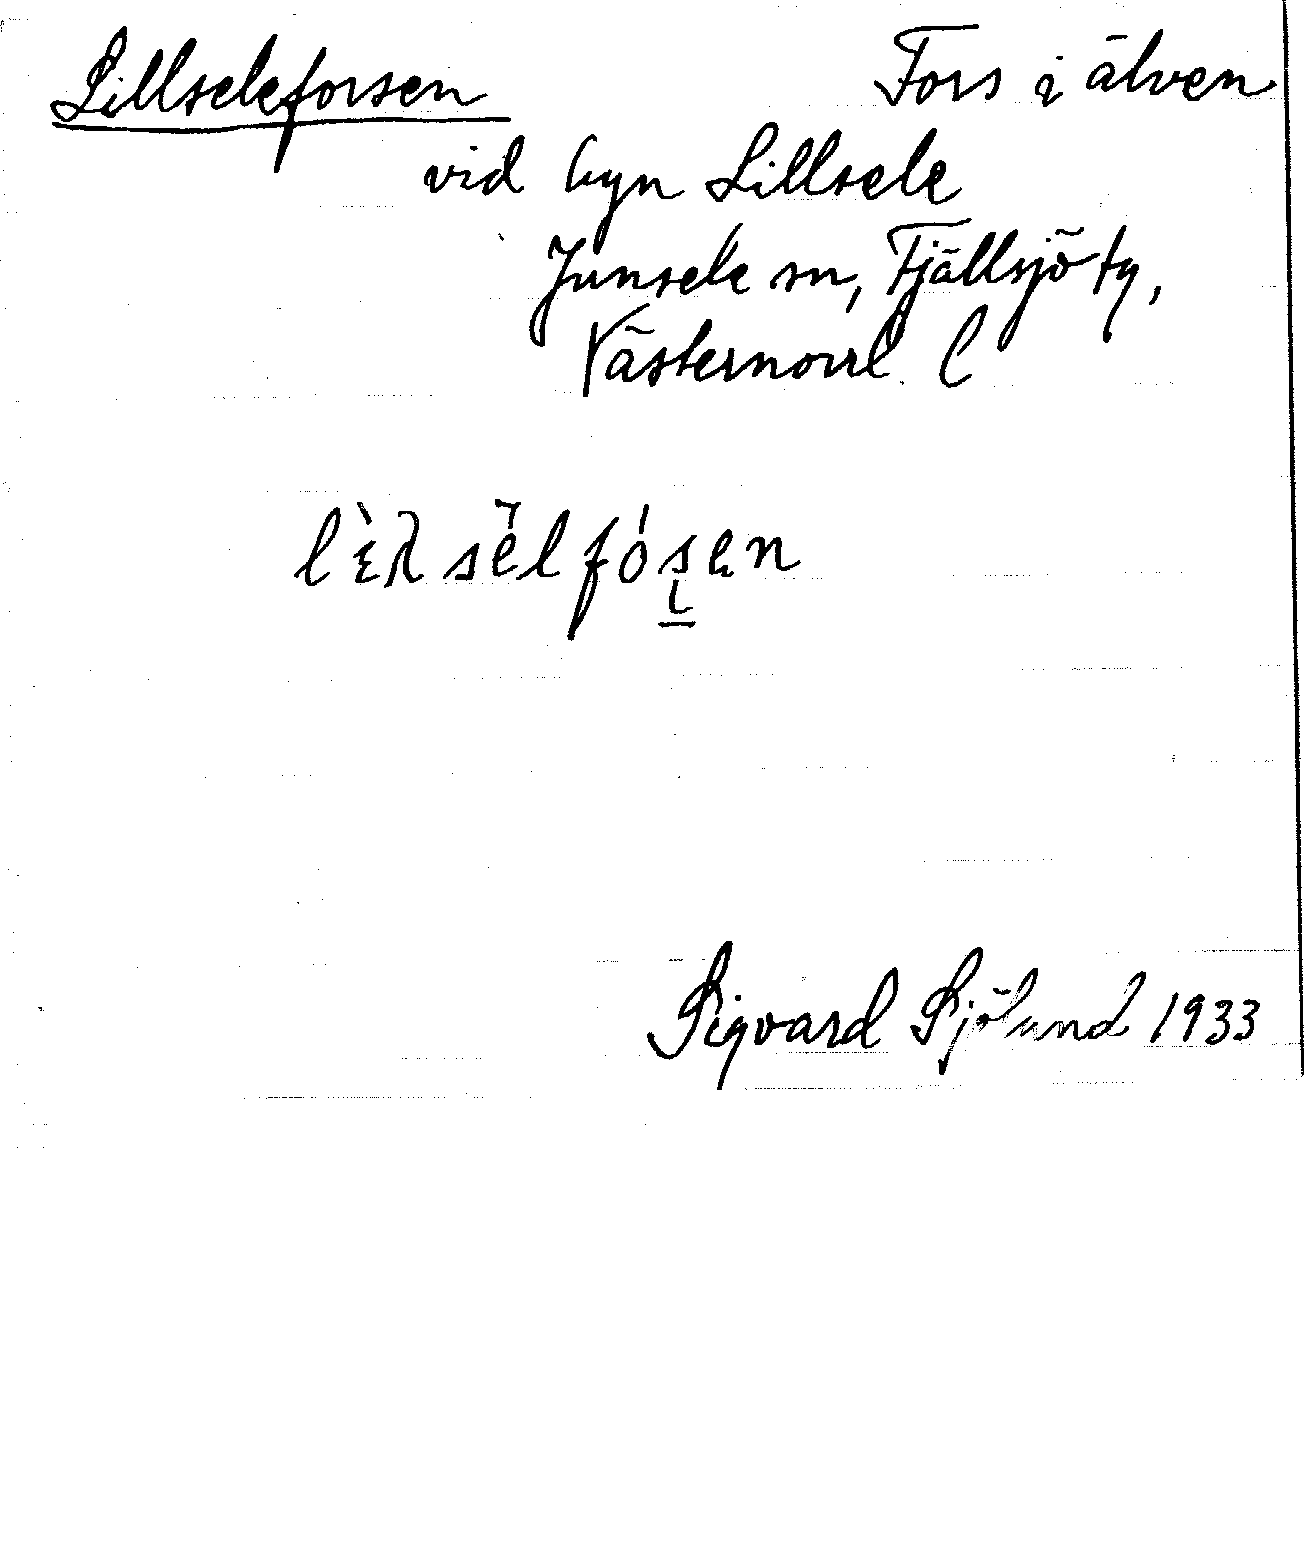 Lillseleforsen Fors i älven
vid byn Lillsele
Junsele sn, Fjällsjö tg,
Västernorrl. l
Sigvard Sjölund 1933